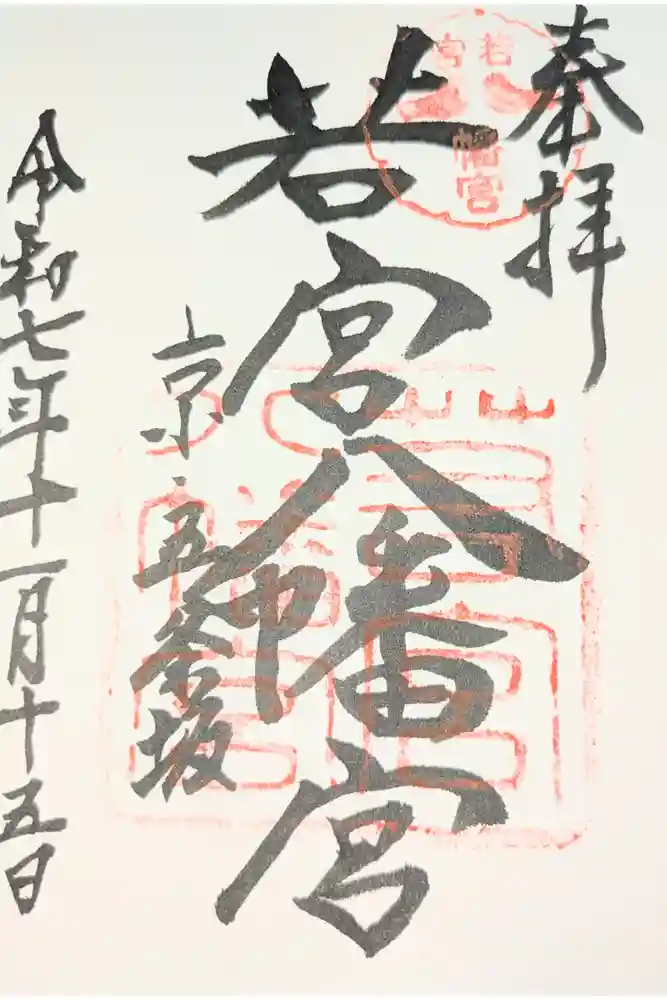 奉拝
若宮八幡宮
若宮
八幡宮
京五条坂
令和七年十一月十五日